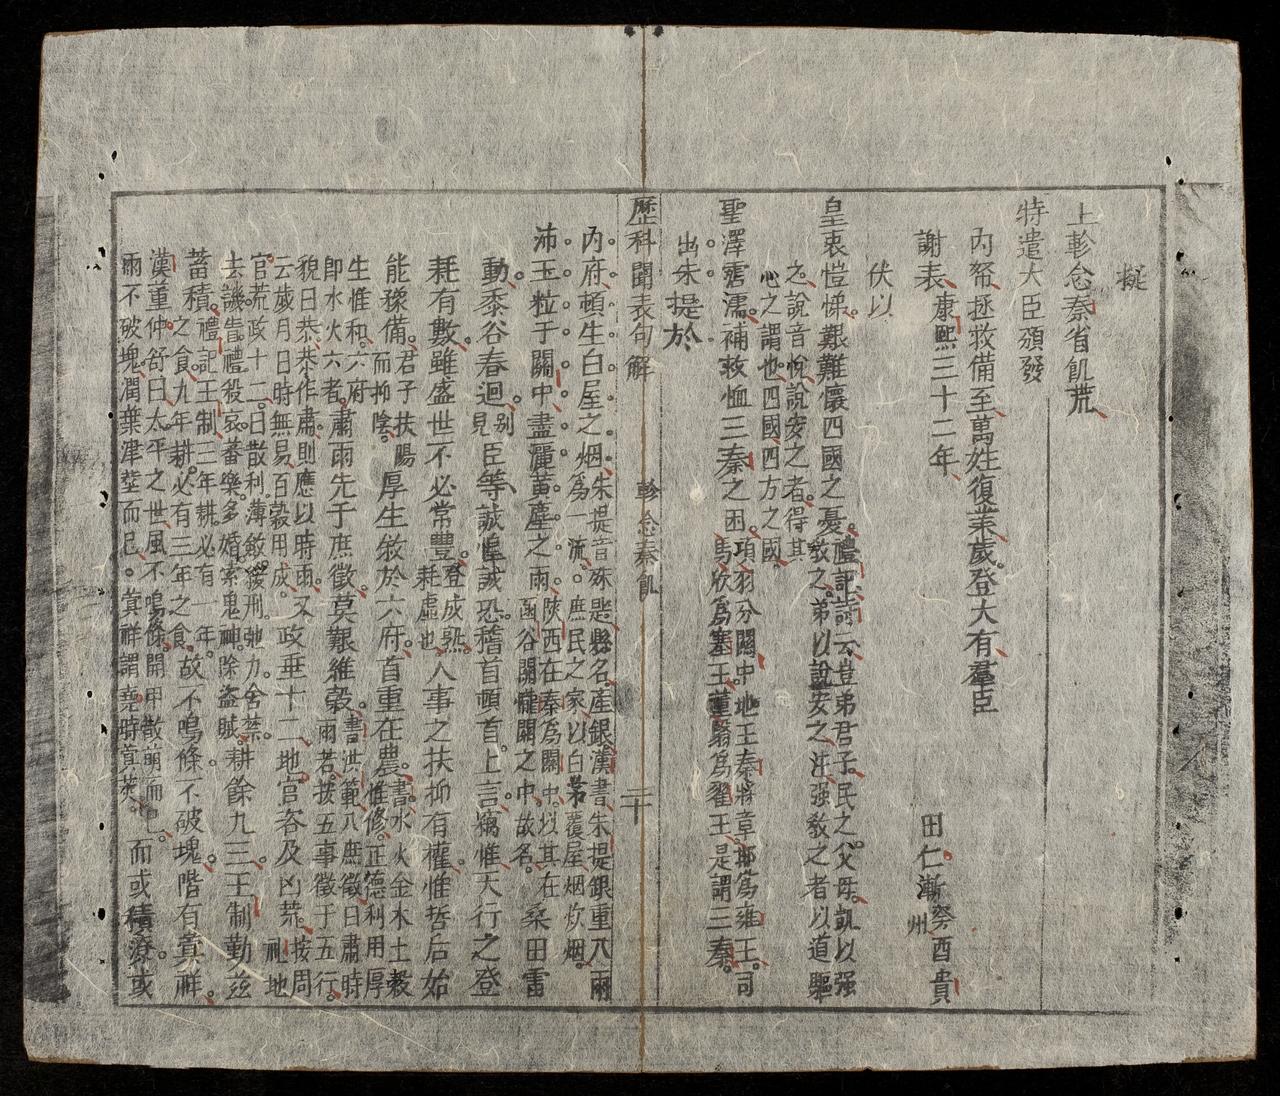 擬
上軫念秦省飢荒
特遣大臣頒發
內帑拯救備至萬姓復業歲登大有羣臣
謝表康熙三十二年 田仁漸癸酉貴州
伏以
皇衷愷悌艱難懷四國之憂禮記詩云豈弟君子民之父母凱以强教之弟以說安之注强教之者以道驅
之說音悅說安之者得其心之謂也四國四方之國
聖澤霑濡補救恤三秦之困項羽分關中地王秦將章邯爲雍王司馬欣爲塞王董翳爲翟王是謂三秦
出朱提於
歷科閣表句解 軫念秦飢 二十
內府頓生白屋之烟朱提音殊匙縣名產銀漢書朱提銀重八兩爲一流庶民之家以白茅覆屋烟炊烟
沛玉粒于關中盡灑黃塵之雨陜西在秦爲關中以其在函谷關隴關之中故名桑田雷
動黍谷春迴別見臣等誠惶誠恐稽首頓首上言竊惟天行之登
耗有數雖盛世不必常豐登成熟耗虛也人事之扶抑有權惟哲后始
能豫備君子扶陽而抑陰厚生敘於六府首重在農書水火金木土穀惟修正德利用厚
生惟和六府卽水火六者肅雨先于庶徵莫艱維穀書洪範八庶徵曰肅時雨若按五事徵于五行
貌曰恭恭作肅則應以時雨又云歲月日時無易百穀用成政垂十二地官咨及凶荒按周禮地
官荒政十二曰散利薄斂緩刑弛力舍禁去譏眚禮殺哀蕃樂多婚索鬼神除盜賊耕餘九三王制勤兹
蓄積禮記王制三年耕必有一年之食九年耕必有三年之食故不鳴條不破塊階有蓂祥
漢董仲舒曰太平之世風不鳴條開甲散萌而已雨不破塊潤葉津莖而已蓂祥謂堯時蓂莢而或積潦或